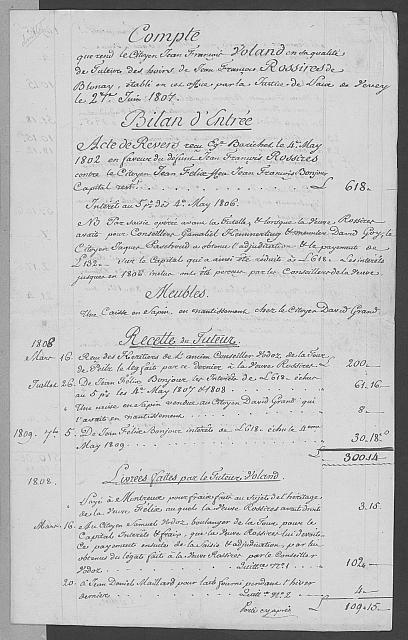 Compte
que rend le Citoyen Jean François Voland en sa qualité
de Tuteur des hoirs de Jean François Rossires de
Blonay, établi en cet office par la Justice de Paix de Vevey
le 2me Juin 1807.
Bilan d'Entrée
Acte de Revers reçu Bocichet le 4e May
1802 en faveur du défunt Jean François Rossires
contre le Citoyen Jean Félix ffeu Jean François Bonjour
Capital resté . . . £ 618.-
Intérêt au 5 p% dès 4e May 1806.
NB Par Saisie opérée avant la Tutelle, & lorsque la Veuve Rossires
avait pour Conseillers Gamaliel & David Goy, le
Citoyen Jaques obtenu l'adjudication & le payement de
£ 132.- sur le Capital qui a ainsi été réduit à £ 618. Les intérêts
jusques en 1806 inclus ont été perçus par les Conseillers de la Veuve.
Meubles.
Une Caisse en Sapin, en nantissement chez le Citoyen David Grand.
1808 Recette du Tuteur.
Mars 16. Reçu des Héritiers de l'ancien Conseiller Vodoz, de la Tour
de Peilz le légat fait par ce dernier à la Veuve Rossires £ 200.-
Juillet 26. De Jean Félix Bonjour, les Intérêts de £ 618 échus
au 5 p% les 4e May 1807 & 1808 . . . 61.16
" Une caisse en sapin vendue au Citoyen David Grand qui
l'avait en nantissement . . . 8.-
1809. 7bre 5. De Jean Félix Bonjour intérêts de £ 618 échu le 4eme
May 1809 . . . 30.18
300.14
1808. Livrées faites par le Tuteur Voland.
" Payé à Montreux pour frais faits au Sujet de l'héritage
de la Veuve Félix auquel la Veuve Rossires avait droit 3.15.
Mars 16 Au Citoyen Samuel Vodoz, boulanger de la Tour, pour le
Capital Intérêts & frais, que la Veuve Rossires lui devait.
Ces payement ensuite de la Saisie & adjudication, par lui
obtenues du légat fait à la Veuve Rossires par le Conseiller
Vodoz . . . Quittce No 1 102.-
20. à Jean Daniel Maillard pour lait fourni pendant l'hiver
dernier . . . Quitt. No 2 4.-
Porté cy après £ 109.15.